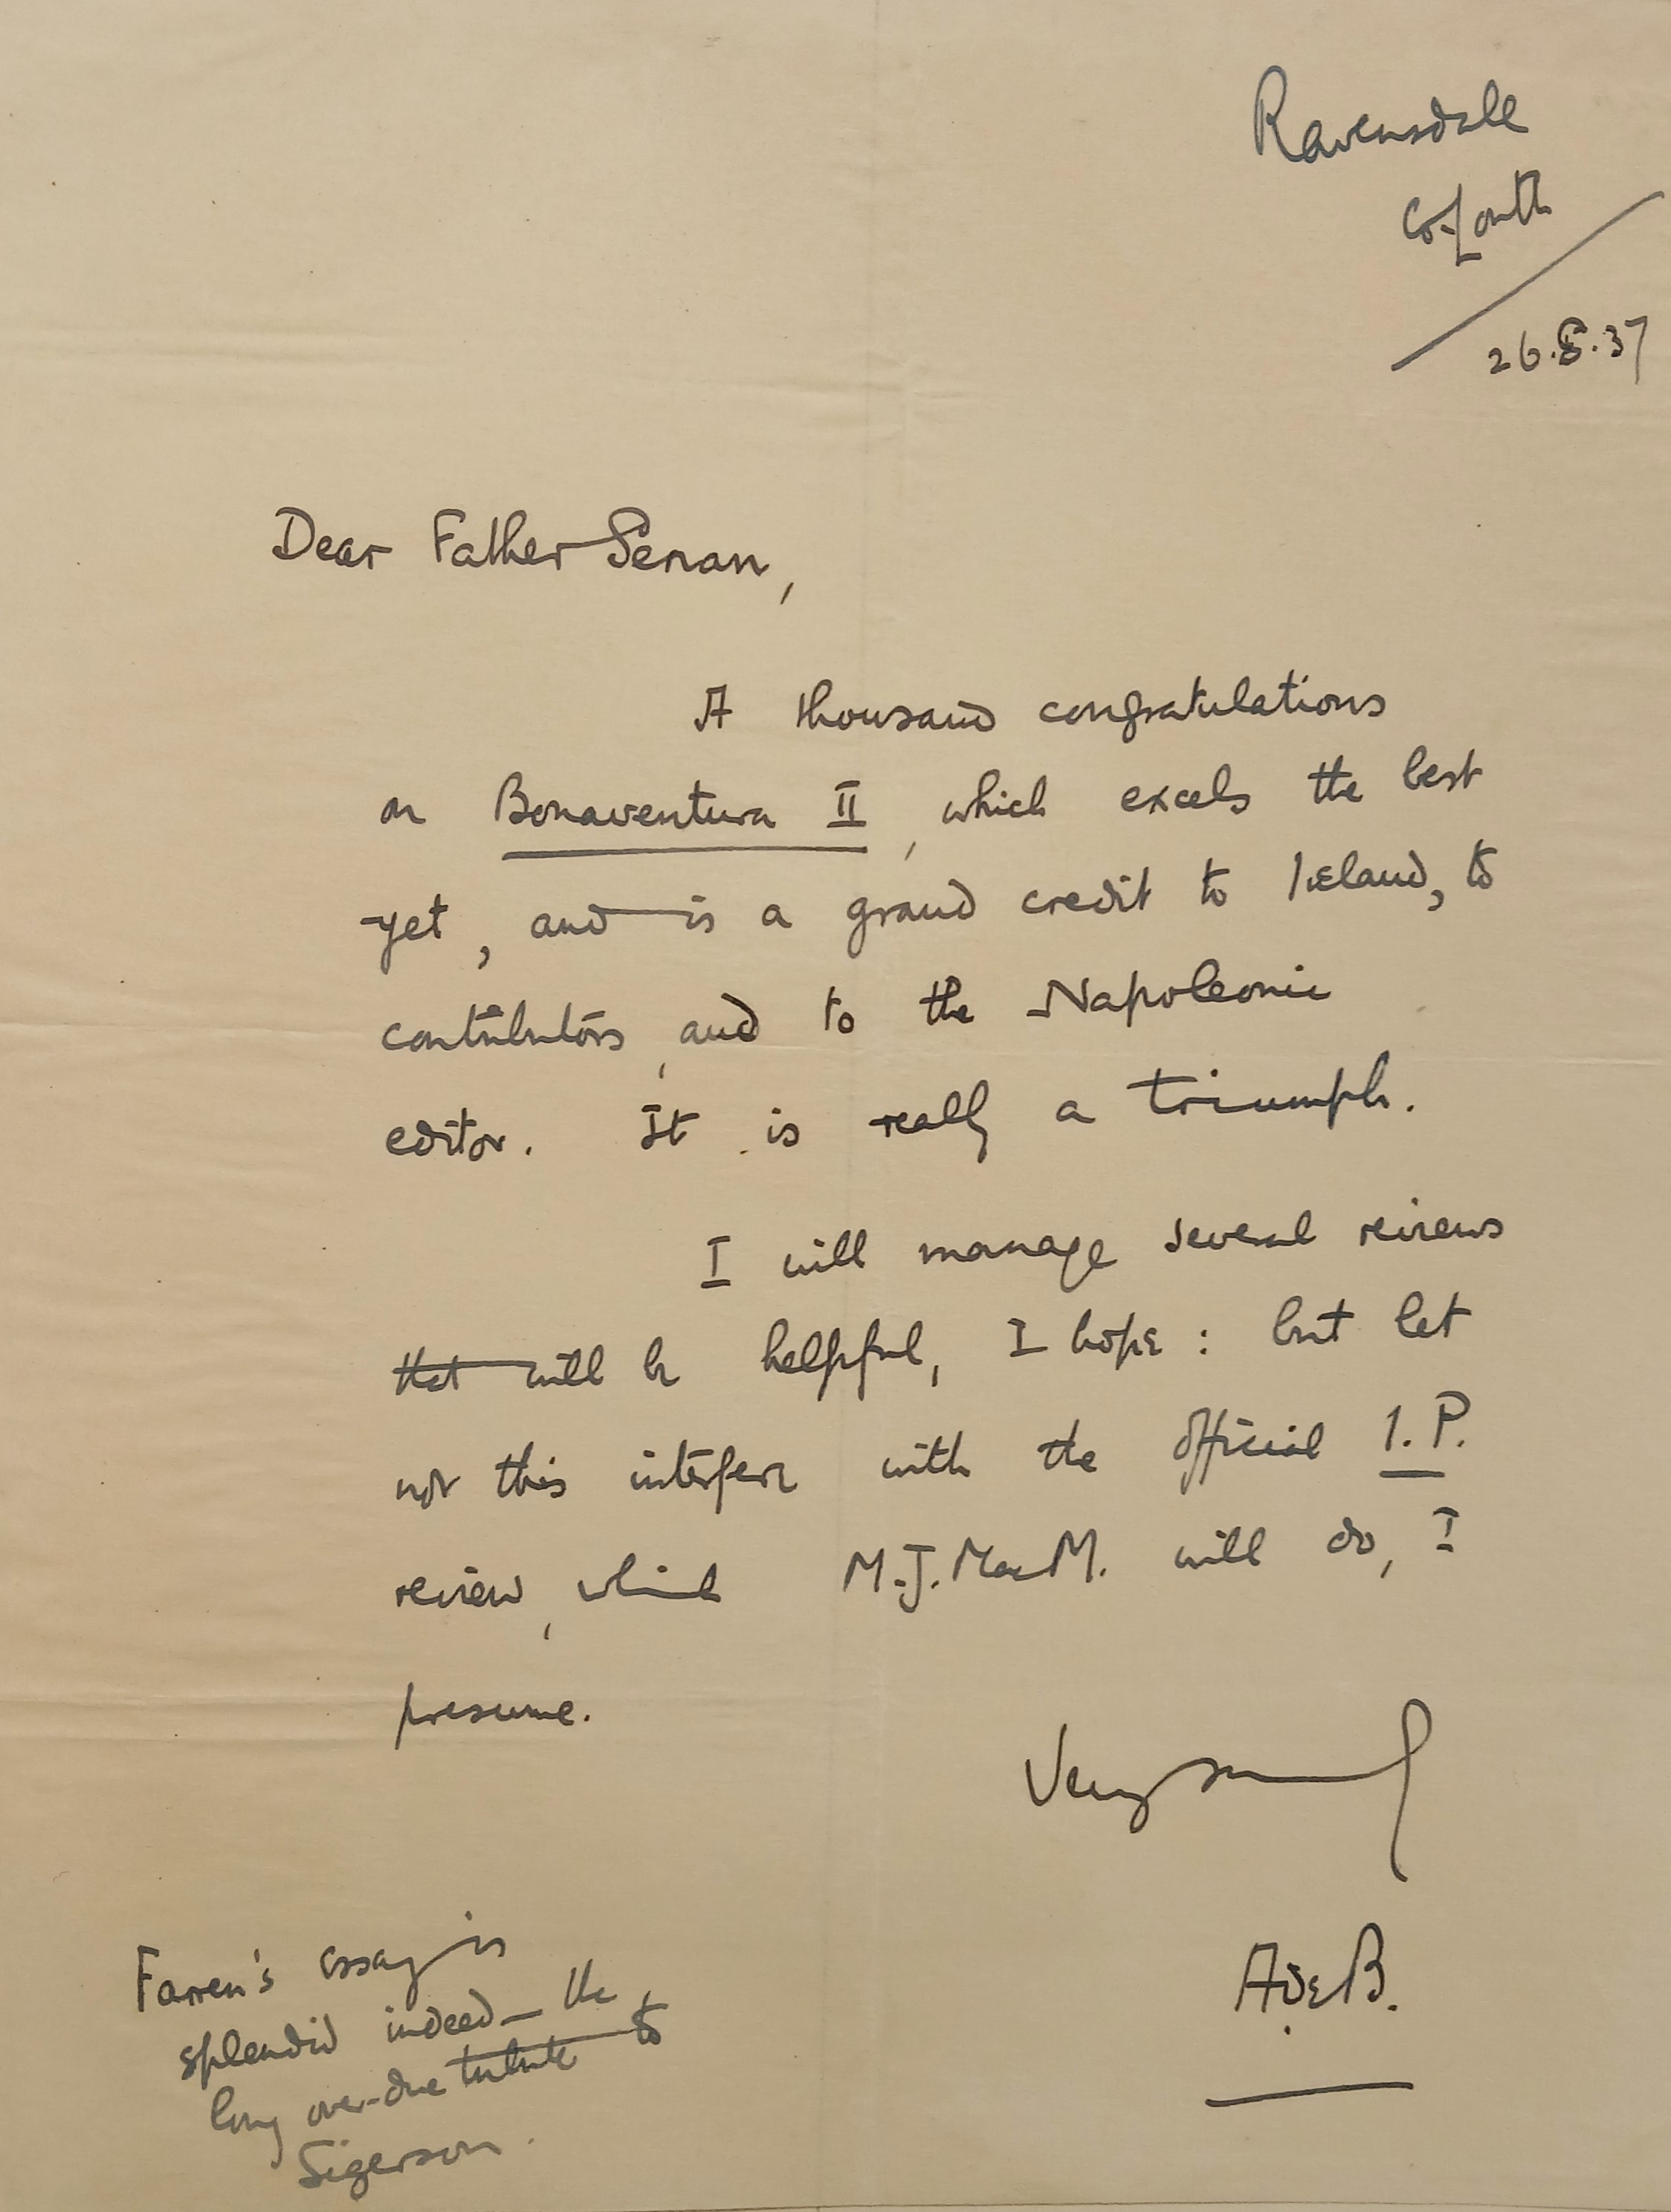 Ravensdale
Co. Louth
26.8.37
Dear Father Senan,
A thousand congratulations
on Bonaventura II, which excels the best
yet, and is a grand credit to Ireland, to
contributors, and to the Napoleonic
editor. It is really a triumph.
I will manage several reviews
that will be helpful, I hope: but let
not this interfere with the official I.P.
review, which M.J. MacM. will do, I
presume.
Very
A de B.
Farren's essay is
splendid indeed – the
long over-due tribute to
Sigerson.